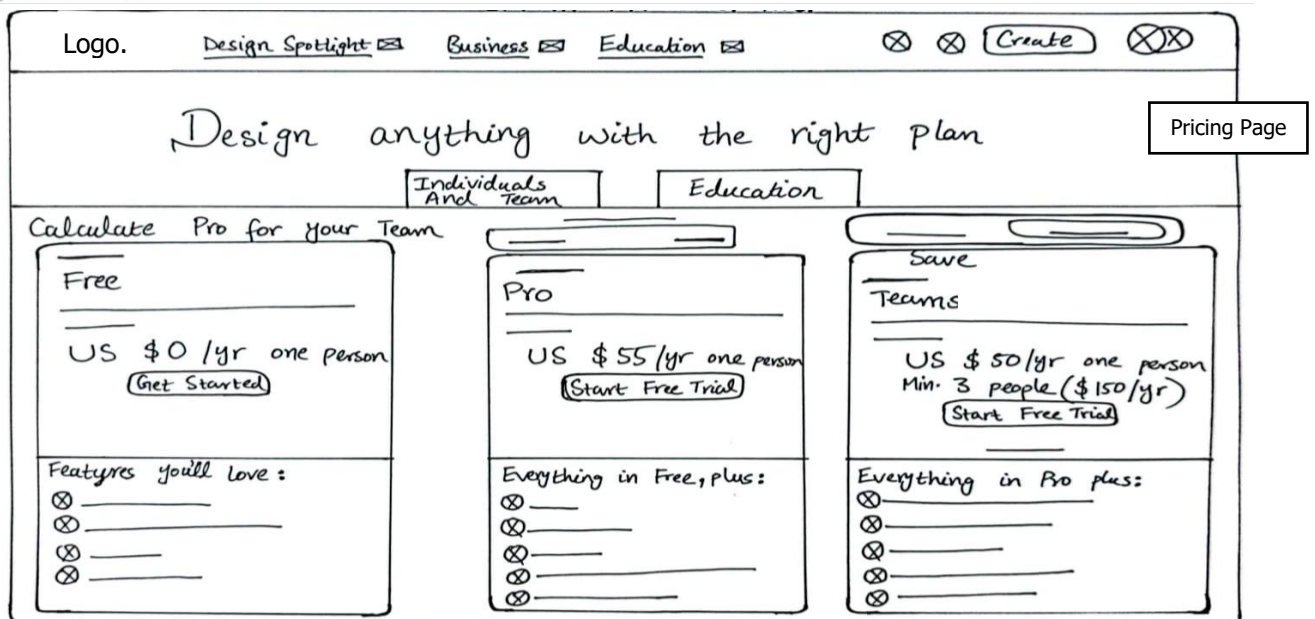 Logo.
Design Spotlight
Business
Education
Create
Design anything with the right plan
Pricing Page
Individuals
And Team
Education
Calculate Pro for your Team
Free
US $0 /yr one person
Get Started
Featyres you'll love:
Pro
US $55/yr one person
Start Free Trial
Everything in Free, plus:
Save
Teams
US $50/yr one person
Min. 3 people ($150/yr)
Start Free Trial
Everything in Pro plus: